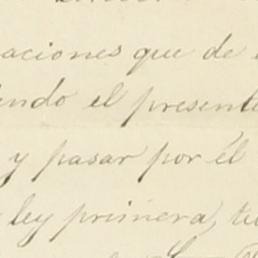 aciones que de
endo el presente
y pasar por él
ley primera, tu